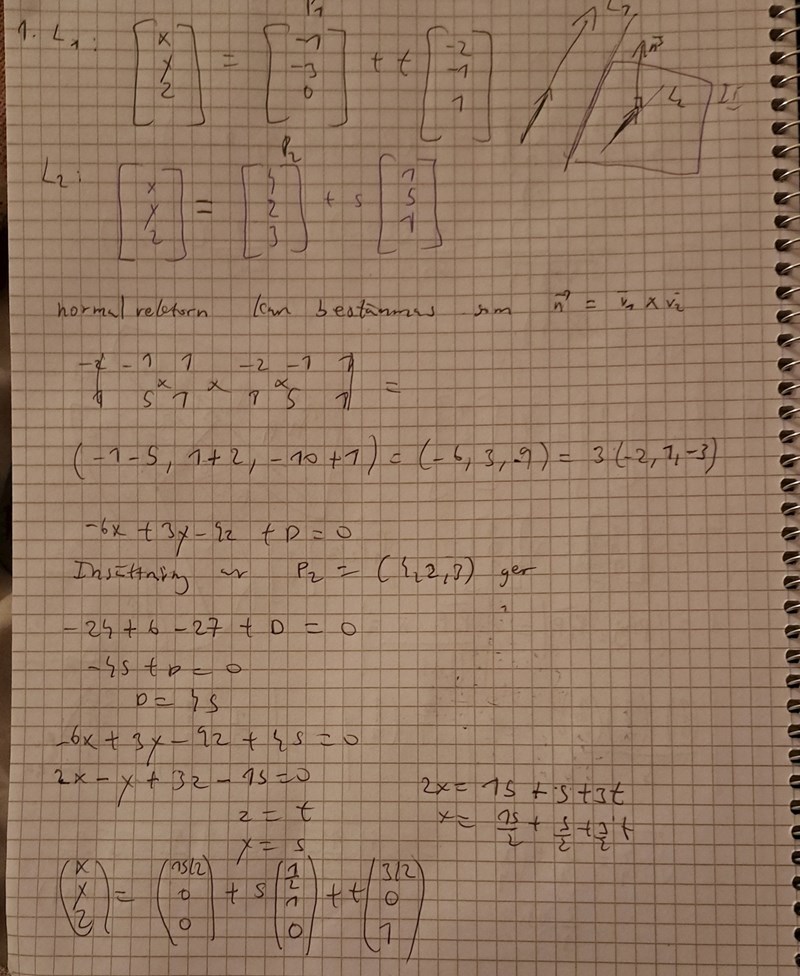 1. L₁: [x y z] = P₁ [-1 -3 0] + t [-2 -1 1]
L₁
n⃗
L₂
L₂: [x y z] = P₂ [4 2 3] + s [1 5 1]
normalvektorn kan bestämmas som n⃗ = v̄₁ × v̄₂
-2 -1 1 -2 -1 1
1 5 × 1 × 1 × 5 1 =
(-1-5, 1+2, -10+1) = (-6, 3, -9) = 3(-2, 1, -3)
-6x + 3y - 9z + D = 0
Insättning av P₂ = (4, 2, 3) ger
-24 + 6 - 27 + D = 0
-45 + D = 0
D = 45
-6x + 3y - 9z + 45 = 0
2x - y + 3z - 15 = 0
z = t
y = s
2x = 15 + s + 3t
x = 15/2 + s/2 + 3/2 t
(x y z) = (15/2 0 0) + s (1/2 1 0) + t (3/2 0 1)